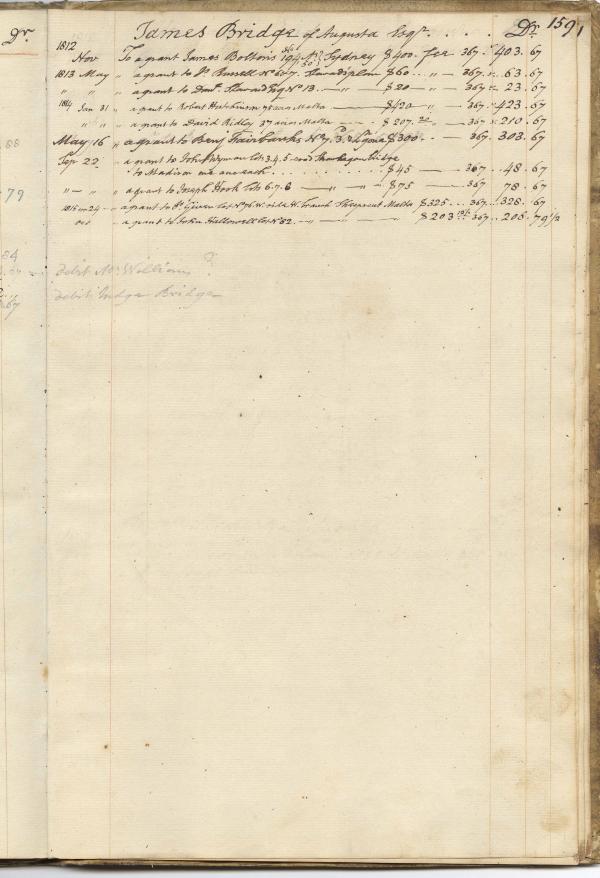 Dr.
James Bridge of Augusta Esqr. . . . . Dr. 159
1812
Nov To a grant James Boltons 194 Sydney $400. fee 367 .. 403.67
1813 May " a grant to Js. Russell No. 607. Howardsplan $60 .. " — 367. " 63.67
" " " a grant to Saml. Howard Esq No. 13. — " — $20 — " — 367 " 23.67
1814 Jan 31 " a grant to Robert Hutchinson 78 acres Malta — $420 " — 367. 423.67
" " " a grant to David Ridley 37 acres Malta — $207. " — 367 " 210.67
May 16 " a grant to Benj. Fairbanks No. 7. 3. Ligonia $300. — 367. 303.67
Sep 22 " a grant to John Wyman lots 3.4.5
to Madison one each . . . . . . . . . $45 — 367 .. 48.67
" — " " a grant to Joseph Hook lots 6.7.8 — " — " $75 — 367 78.67
1815 24 " a grant to Js. Given lot No. 76. W. side W. branch Sheepscut Malta $325 .. 367 .. 328.67
a grant to John Hallowell lot No. 82. — " — " — $203 367 .. 206.79 1/2
88
79
84
67
debit Mr. Williams ?
debit Judge Bridge